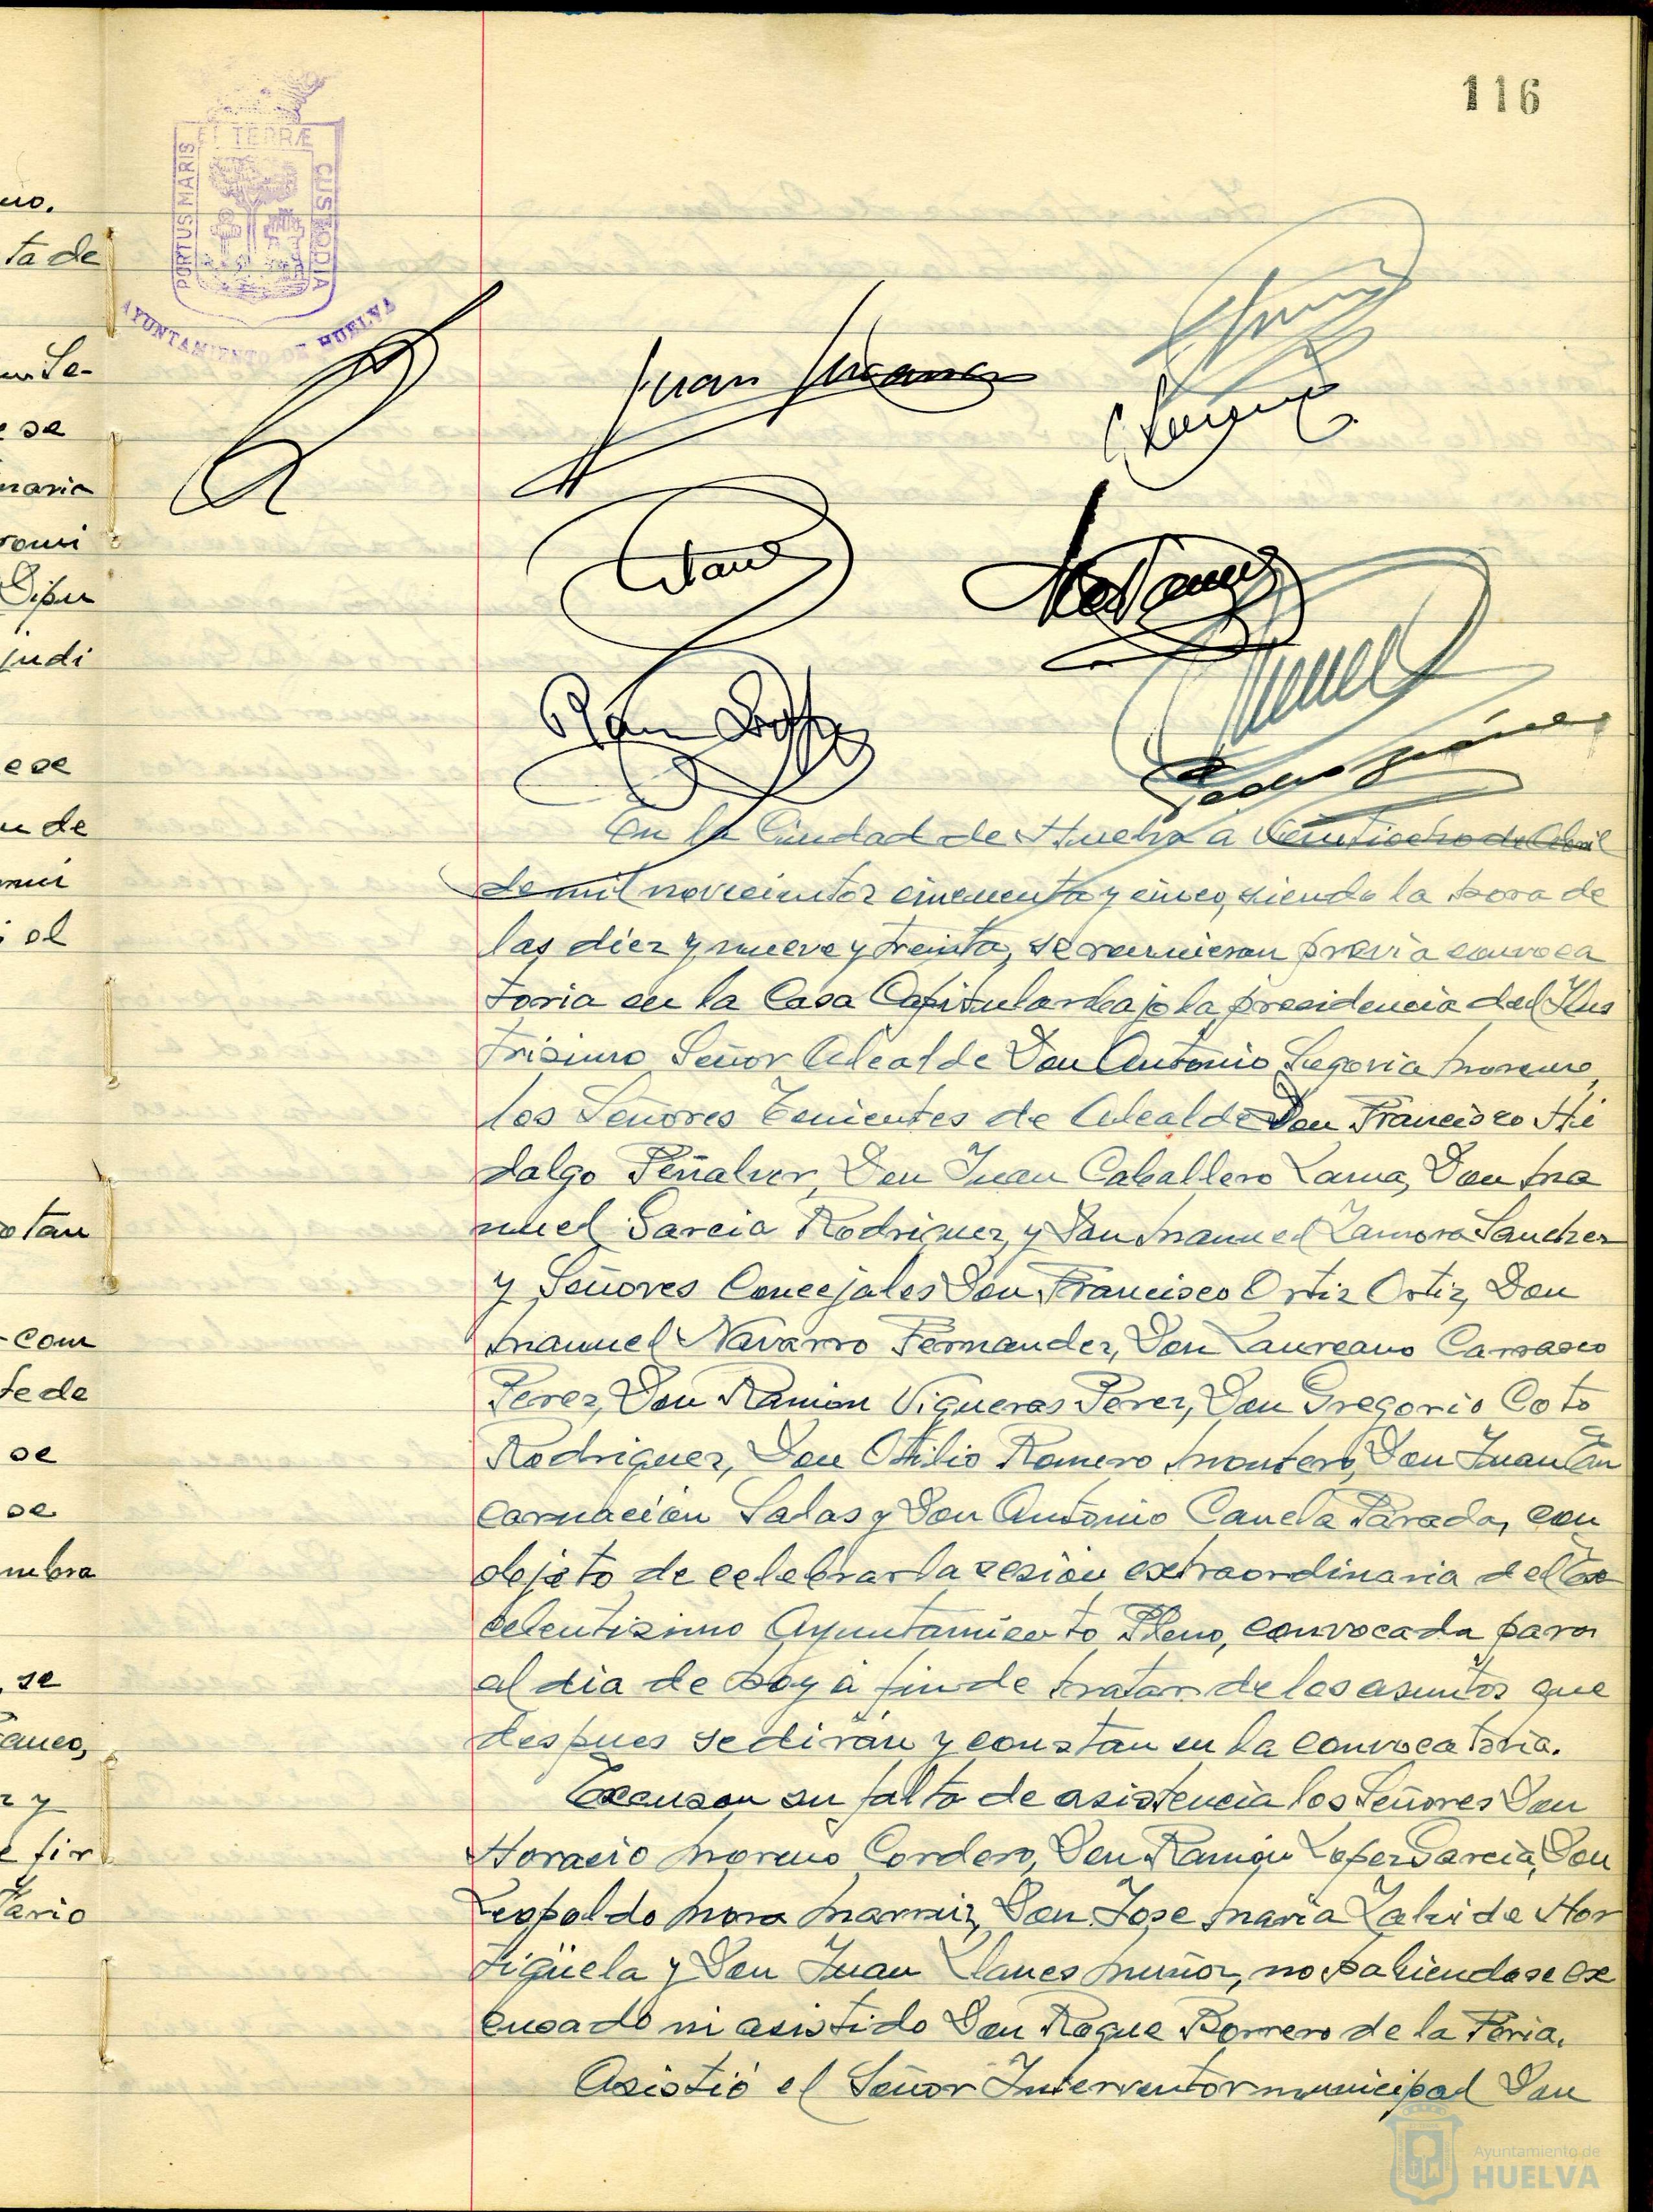 116
ET TERRÆ
PORTUS MARIS
CUSTODIA
AYUNTAMIENTO DE HUELVA
ta de
se
Dipu
judi
ese
de
el
tan
com
te de
se
se
mbra
se
y
fir
tario
Juan
En la Ciudad de Huelva a Veintiocho de Abril
de mil novecientos cincuenta y cinco, siendo la hora de
las diez y nueve y treinta, se reunieron previa convoca
toria en la Casa Capitular bajo la presidencia del Ilus
trisimo Señor Alcalde Don Antonio Segovia Moreno,
los Señores Tenientes de Alcalde Don Francisco Hi
dalgo Peñalver, Don Juan Caballero Lama, Don Ma
nuel Garcia Rodriguez, y Don Manuel Zamora Sanchez
y Señores Concejales Don Francisco Ortiz Ortiz, Don
Manuel Navarro Fernandez, Don Laureano Carrasco
Perez, Don Ramon Vigueras Perez, Don Gregorio Coto
Rodriguez, Don Otilio Romero Montero, Don Juan En
carnación Salas y Don Antonio Canela Parada, con
objeto de celebrar la sesión extraordinaria del Ex
celentisimo Ayuntamiento Pleno, convocada para
el dia de hoy a fin de tratar de los asuntos que
despues se dirán y constan en la convocatoria.
Excusan su falta de asistencia los Señores Don
Horacio Moreno Cordero, Don Ramón Lopez Garcia, Don
Leopoldo Mora Don Jose Maria de Hor
tigüela y Don Juan Llanes Muñoz, no habiendose ex
cusado ni asistido Don Roque Borrero de la Feria.
Asistió el Señor Interventor municipal Don
Ayuntamiento de
HUELVA